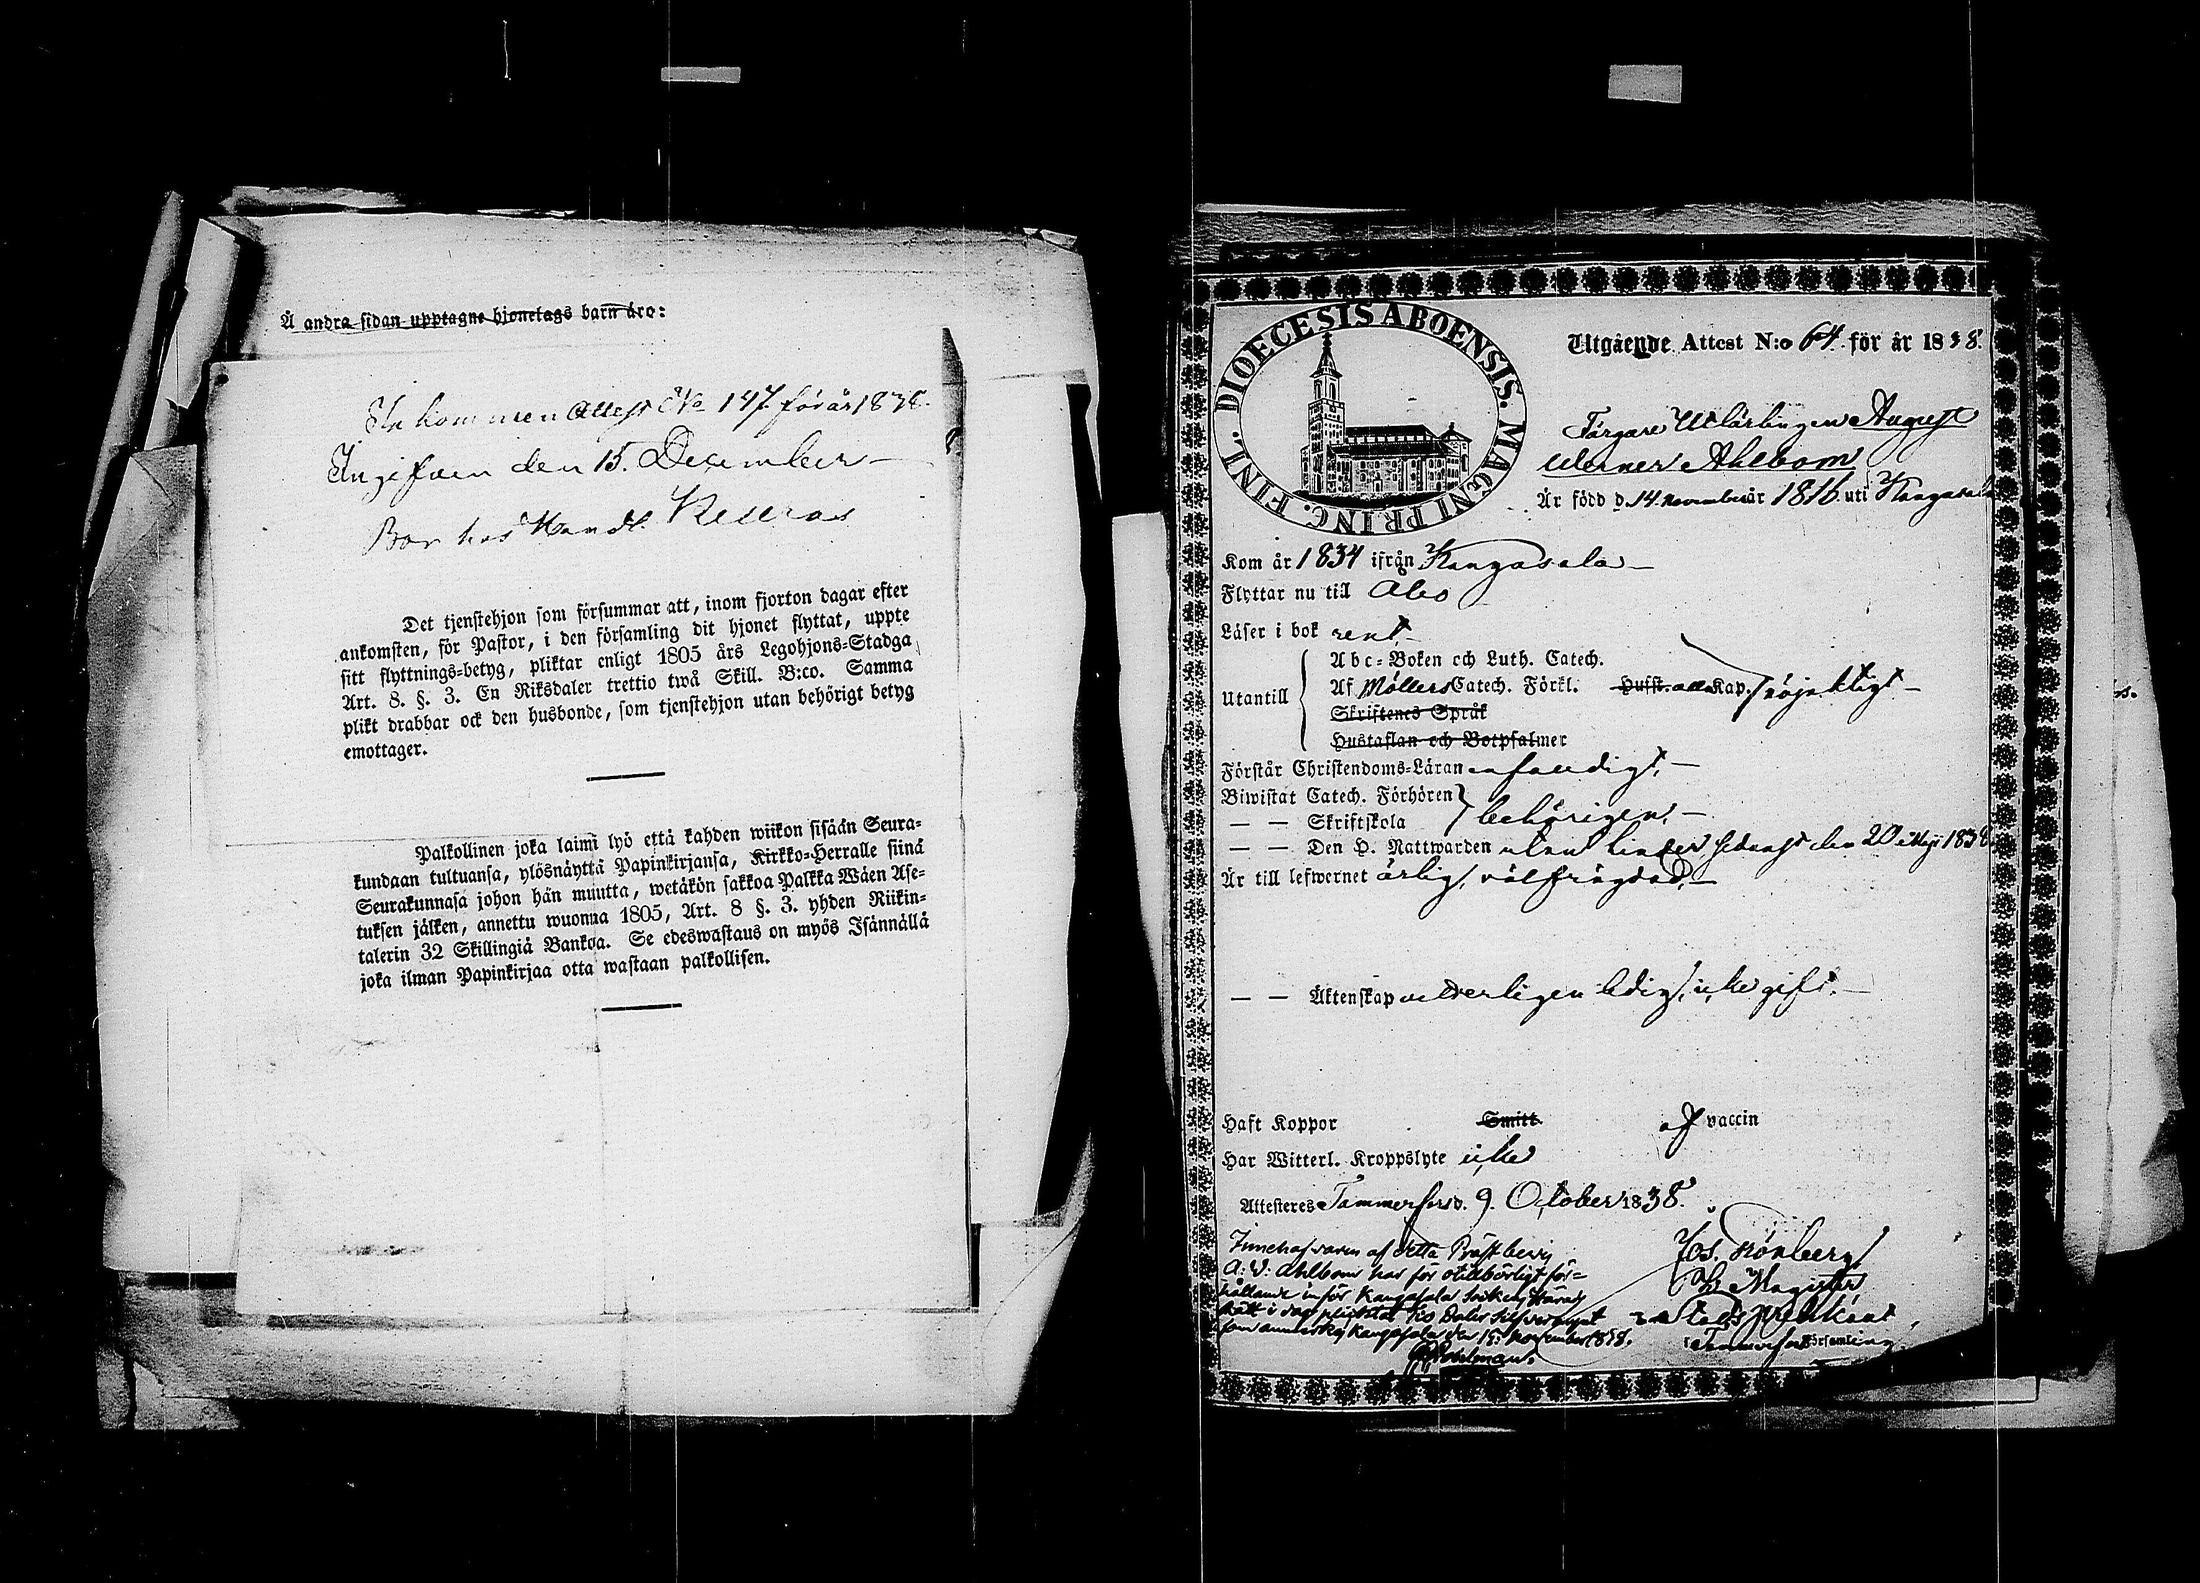 Å andra sidan upptagne hjonelags barn äro:
Inkommen Attest No 147 för år 1838.
Ingifven den 15. December
Bor hos Handl.
Det tjenstehjon som försummar att, inom fjorton dagar efter
ankomsten, för Pastor, i den församling dit hjonet flyttat, uppte
sitt flyttnings-betyg, pliktar enligt 1805 års Legohjons-Stadga
Art. 8. §. 3. En Riksdaler trettio twå Skill. B:co. Samma
plikt drabbar ock den husbonde, som tjenstehjon utan behörigt betyg
emottager.
Palkollinen joka laimi lyö että kahden wiikon sisään Seura-
kundaan tultuansa, ylösnäyttä Papinkirjansa, Kirkko-Herralle siinä
Seurakunnasa johon hän muutta, wetäkön sakkoa Palkka Wäen Ase-
tuksen jälken, annettu wuonna 1805, Art. 8 §. 3. yhden Riikin-
talerin 32 Skillingiä Bankoa. Se edeswastaus on myös Isännällä
joka ilman Papinkirjaa otta wastaan palkollisen.
DIOECESIS ABOENSIS. MAGNI PRINC. FINL.
Utgående Attest N:o 64. för år 1838.
Färgare Utlärlingen August
Werner Ahlbom
Är född d. 14 november år 1816 uti Kangasala
Kom år 1834 ifrån Kangasala
Flyttar nu till Åbo
Läser i bok rent,
Abc-Boken och Luth. Catech.
Utantill Af Möllers Catech. Förkl. Husst. alla Kap. nöjaktigt
Skriftenes Språk
Hustaflan och Botpsalmer
Förstår Christendoms-Läran enfaldigt,
Biwistat Catech. Förhören
— — Skriftskola behörigen,
— — Den H. Nattwarden utan hinder, sednast den 20 Maji 1838
Är till lefwernet ärlig, välfrägdad,
— — Äktenskap veterligen ledig, icke gift.
Haft Koppor Smitt af vaccin
Har Witterl. Kroppslyte icke
Attesteres Tammerfors d. 9. October 1838.
Innehafvaren af detta Prästbevis
A: W: Ahlbom har för otillbörligt för-
hållande inför Kangasala Sockens Härads
Rätt i dag pliktat tio Daler Silfvermynt
som anmärkes Kangasala den 15. November 1838.
Jos. Grönberg
Ph. Magister
Stads Predikant
i Tammerfors Församling